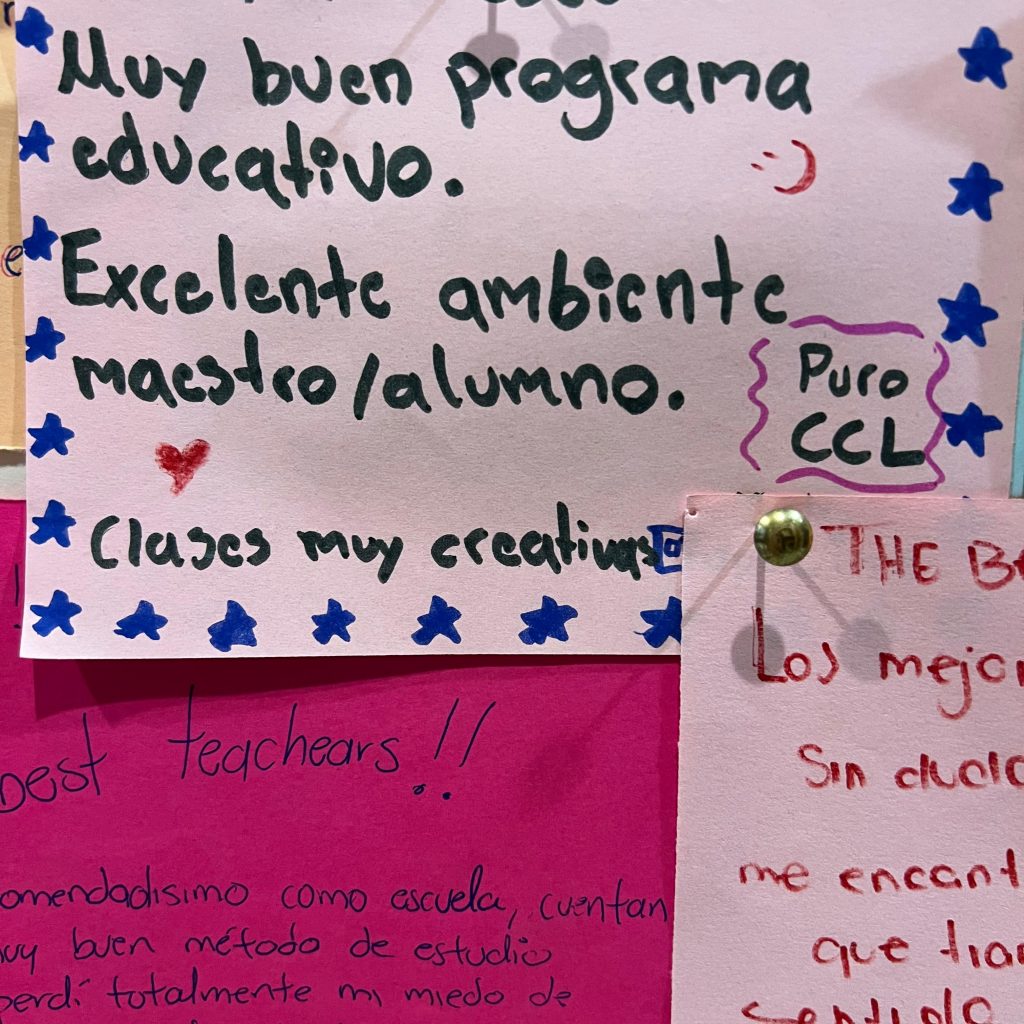 Muy buen programa
educativo.
:)
Excelente ambiente
maestro/alumno.
Puro
CCL
Clases muy creativas
best teachears!!
comendadisimo como escuela, cuentan
buen método de estudio
perdí totalmente mi miedo de
THE
Los
Sin
me
que
sentido